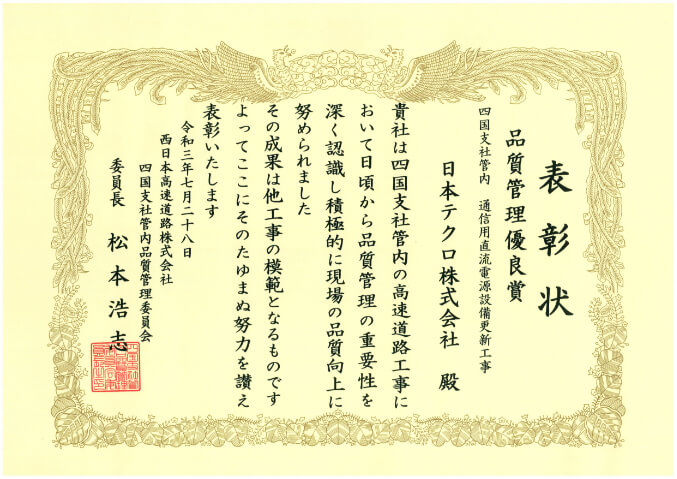 表彰状
品質管理優良賞
四国支社管内　通信用直流電源設備更新工事
日本テクロ株式会社　殿
貴社は四国支社管内の高速道路工事に
おいて日頃から品質管理の重要性を
深く認識し積極的に現場の品質向上に
努められました
その成果は他工事の模範となるものです
よってここにそのたゆまぬ努力を讃え
表彰いたします
令和三年七月二十八日
西日本高速道路株式会社
四国支社管内品質管理委員会
委員長　松本浩志